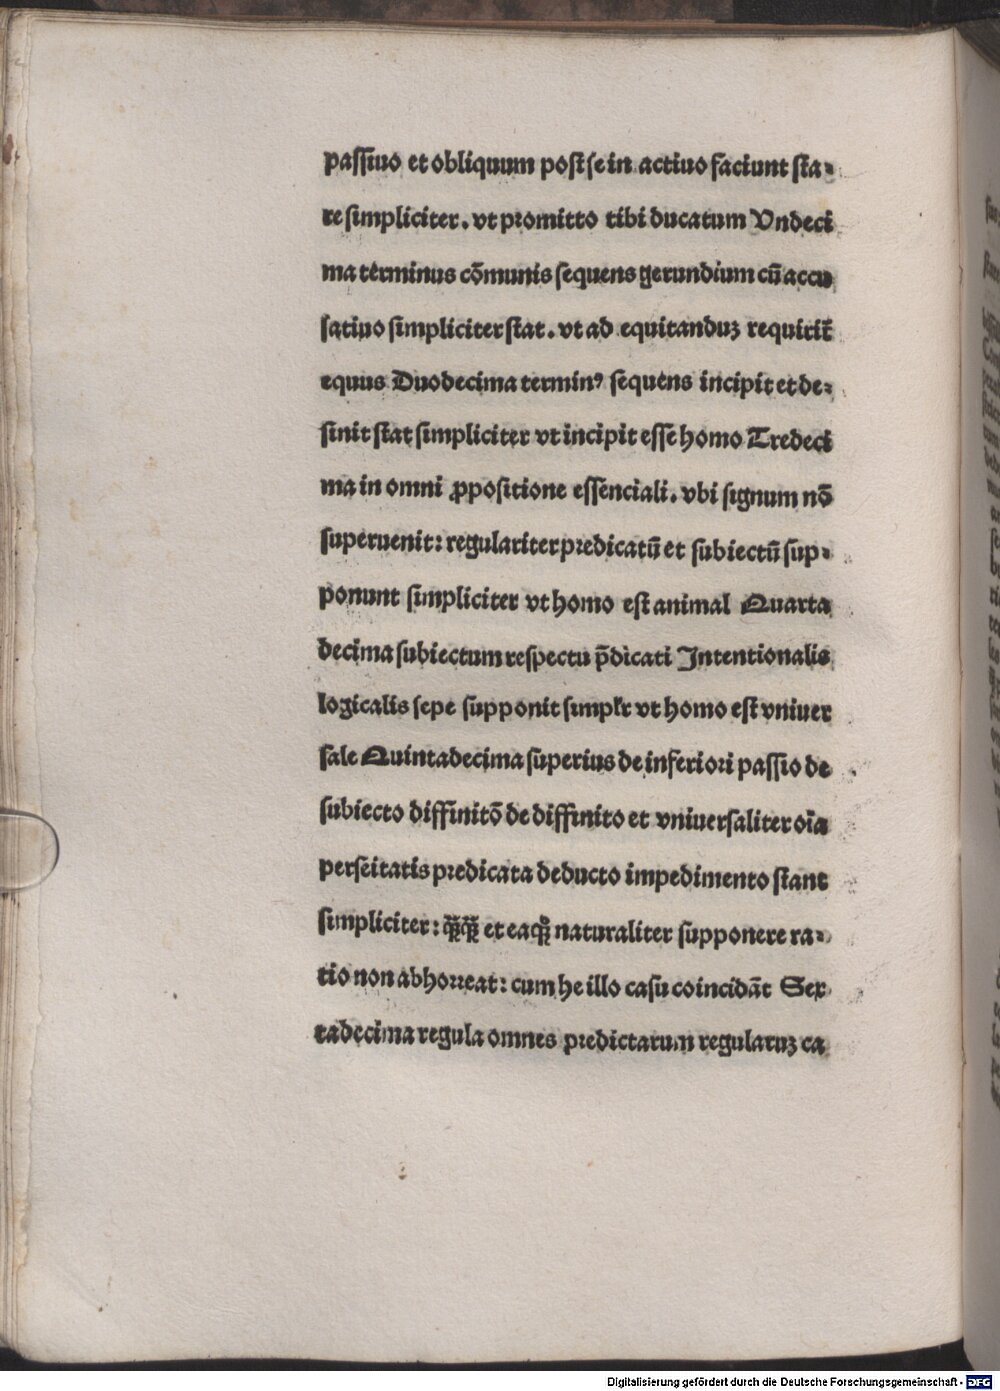 passiuo et obliquum post se in actiuo faciunt sta⸗
re simpliciter. vt promitto tibi ducatum Vndeci
ma terminus cōmunis sequens gerundium cū accu
satiuo simpliciter stat. vt ad equitanduꝫ requirit̄
equus Duodecima terminꝰ sequens incipit et de⸗
sinit stat simpliciter vt incipit esse homo Tredeci
ma in omni ꝓpositione essenciali. vbi signum nō
superuenit: regulariter predicatū et subiectū sup⸗
ponunt simpliciter vt homo est animal Quarta
decima subiectum respectu p̄dicati Intentionalis
logicalis sepe supponit simpłr vt homo est vniuer
sale Quintadecima superius de inferiori passio de
subiecto diffinitō de diffinito et vniuersaliter oīa
perseitatis predicata deducto impedimento stant
simpliciter: qq̄ et eaq̄ naturaliter supponere ra⸗
tio non abhorreat: cum he illo casu coincidāt Sex
tadecima regula omnes predictarum regularuꝫ ca
Digitalisierung gefördert durch die Deutsche Forschungsgemeinschaft - DFG